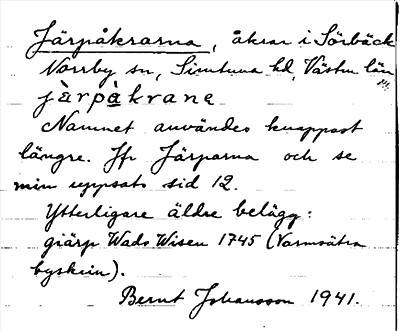 Järpåkrarna, åkrar i Sörbäck
Norrby sn, Simtuna hd, Västm län
jàrpåkrane
Namnet användes knappast
längre. Jfr Järparna och se
min uppsats sid 12.
Ytterligare äldre belägg:
giärp Wads Wisen 1745 (Varmsätra
byskrin).
Bernt Johansson 1941.